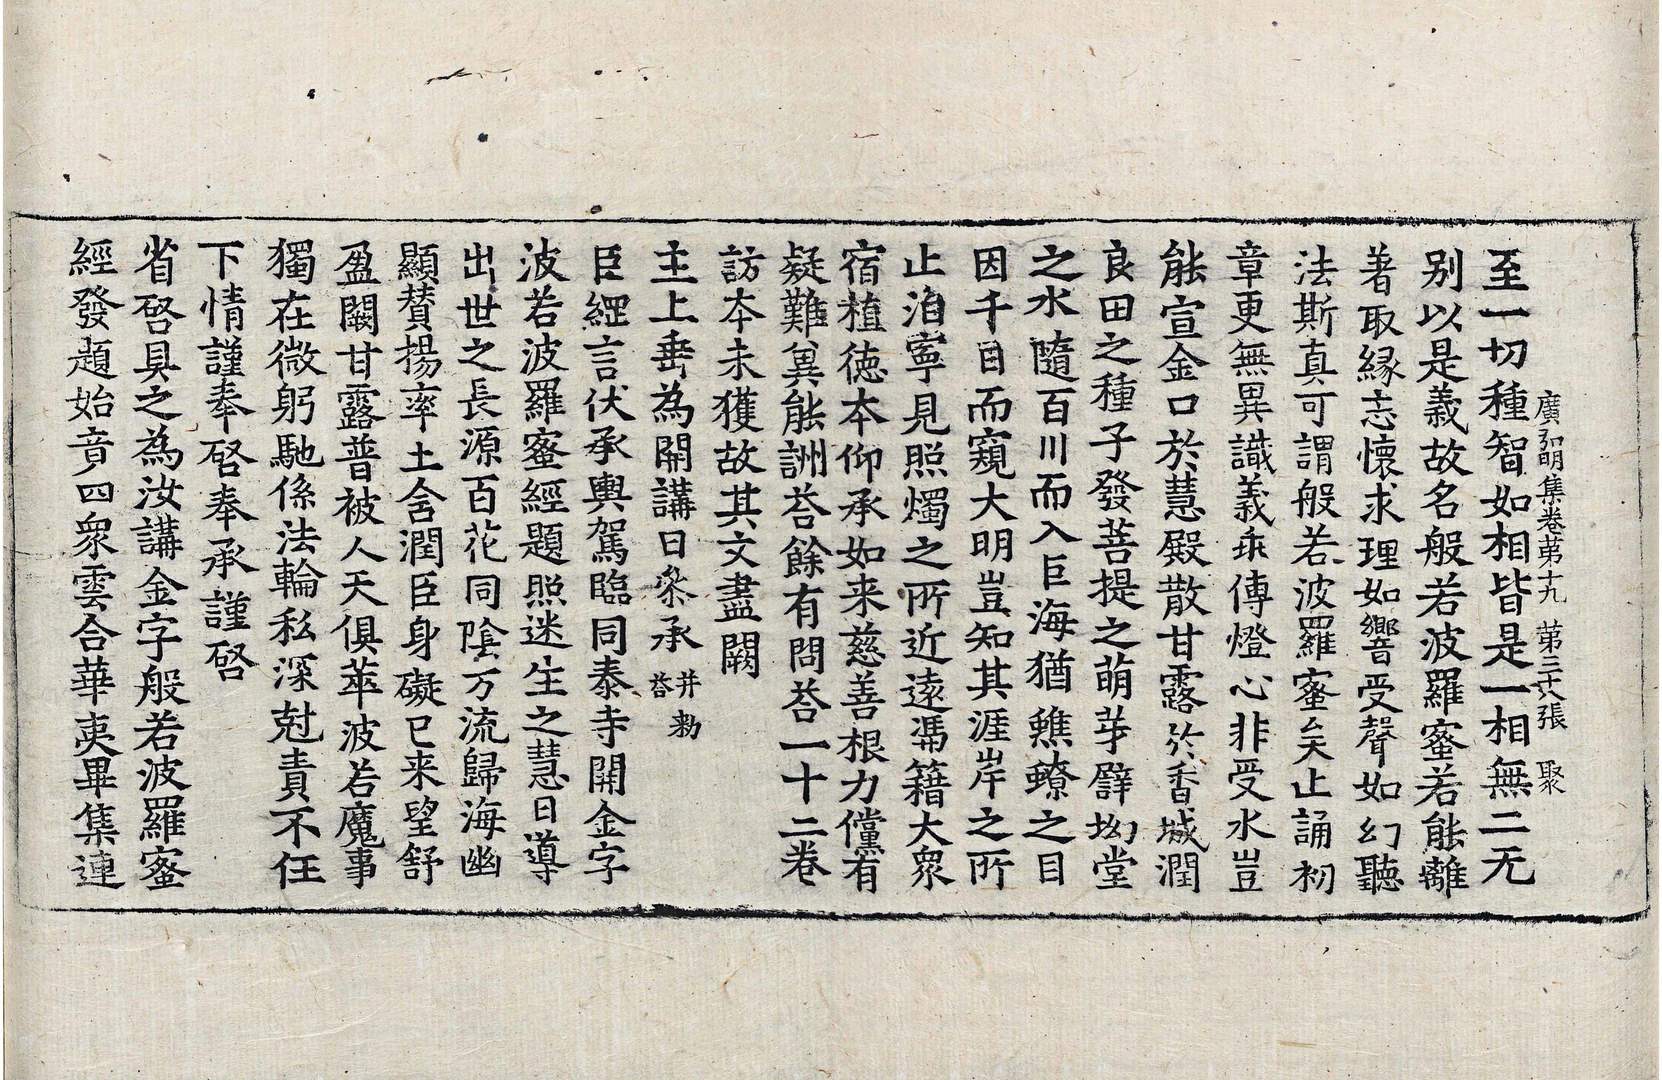 廣弘明集卷第十九 第三十六張 聚
至一切種智如相皆是一相無二无
别以是義故名般若波羅蜜若能離
著取縁忘懷求理如響受聲如幻聽
法斯真可謂般若波羅蜜矣止誦初
章更無異識義乖傳燈心非受水豈
能宣金口於慧殿散甘露於香城潤
良田之種子發菩提之萌芽譬坳堂
之水隨百川而入巨海猶蟭螟之目
因千日而窺大明豈知其涯岸之所
止洎寧見照燭之所近遠馮籍大衆
宿植徳本仰承如来慈善根力儻有
疑難兾能詶荅餘有問荅一十二卷
訪本未獲故其文盡闕
主上垂為開講日叅承 并勑荅
臣經言伏承輿駕臨同泰寺開金字
波若波羅蜜經題照迷生之慧日導
出世之長源百花同陰万流歸海幽
顯賛揚率土含潤臣身礙已来望舒
盈闕甘露普被人天俱萃波若魔事
獨在微躬馳係法輪私深剋責不任
下情謹奉啓奉承謹啓
省啓具之為汝講金字般若波羅蜜
經發題始竟四衆雲合華夷畢集連